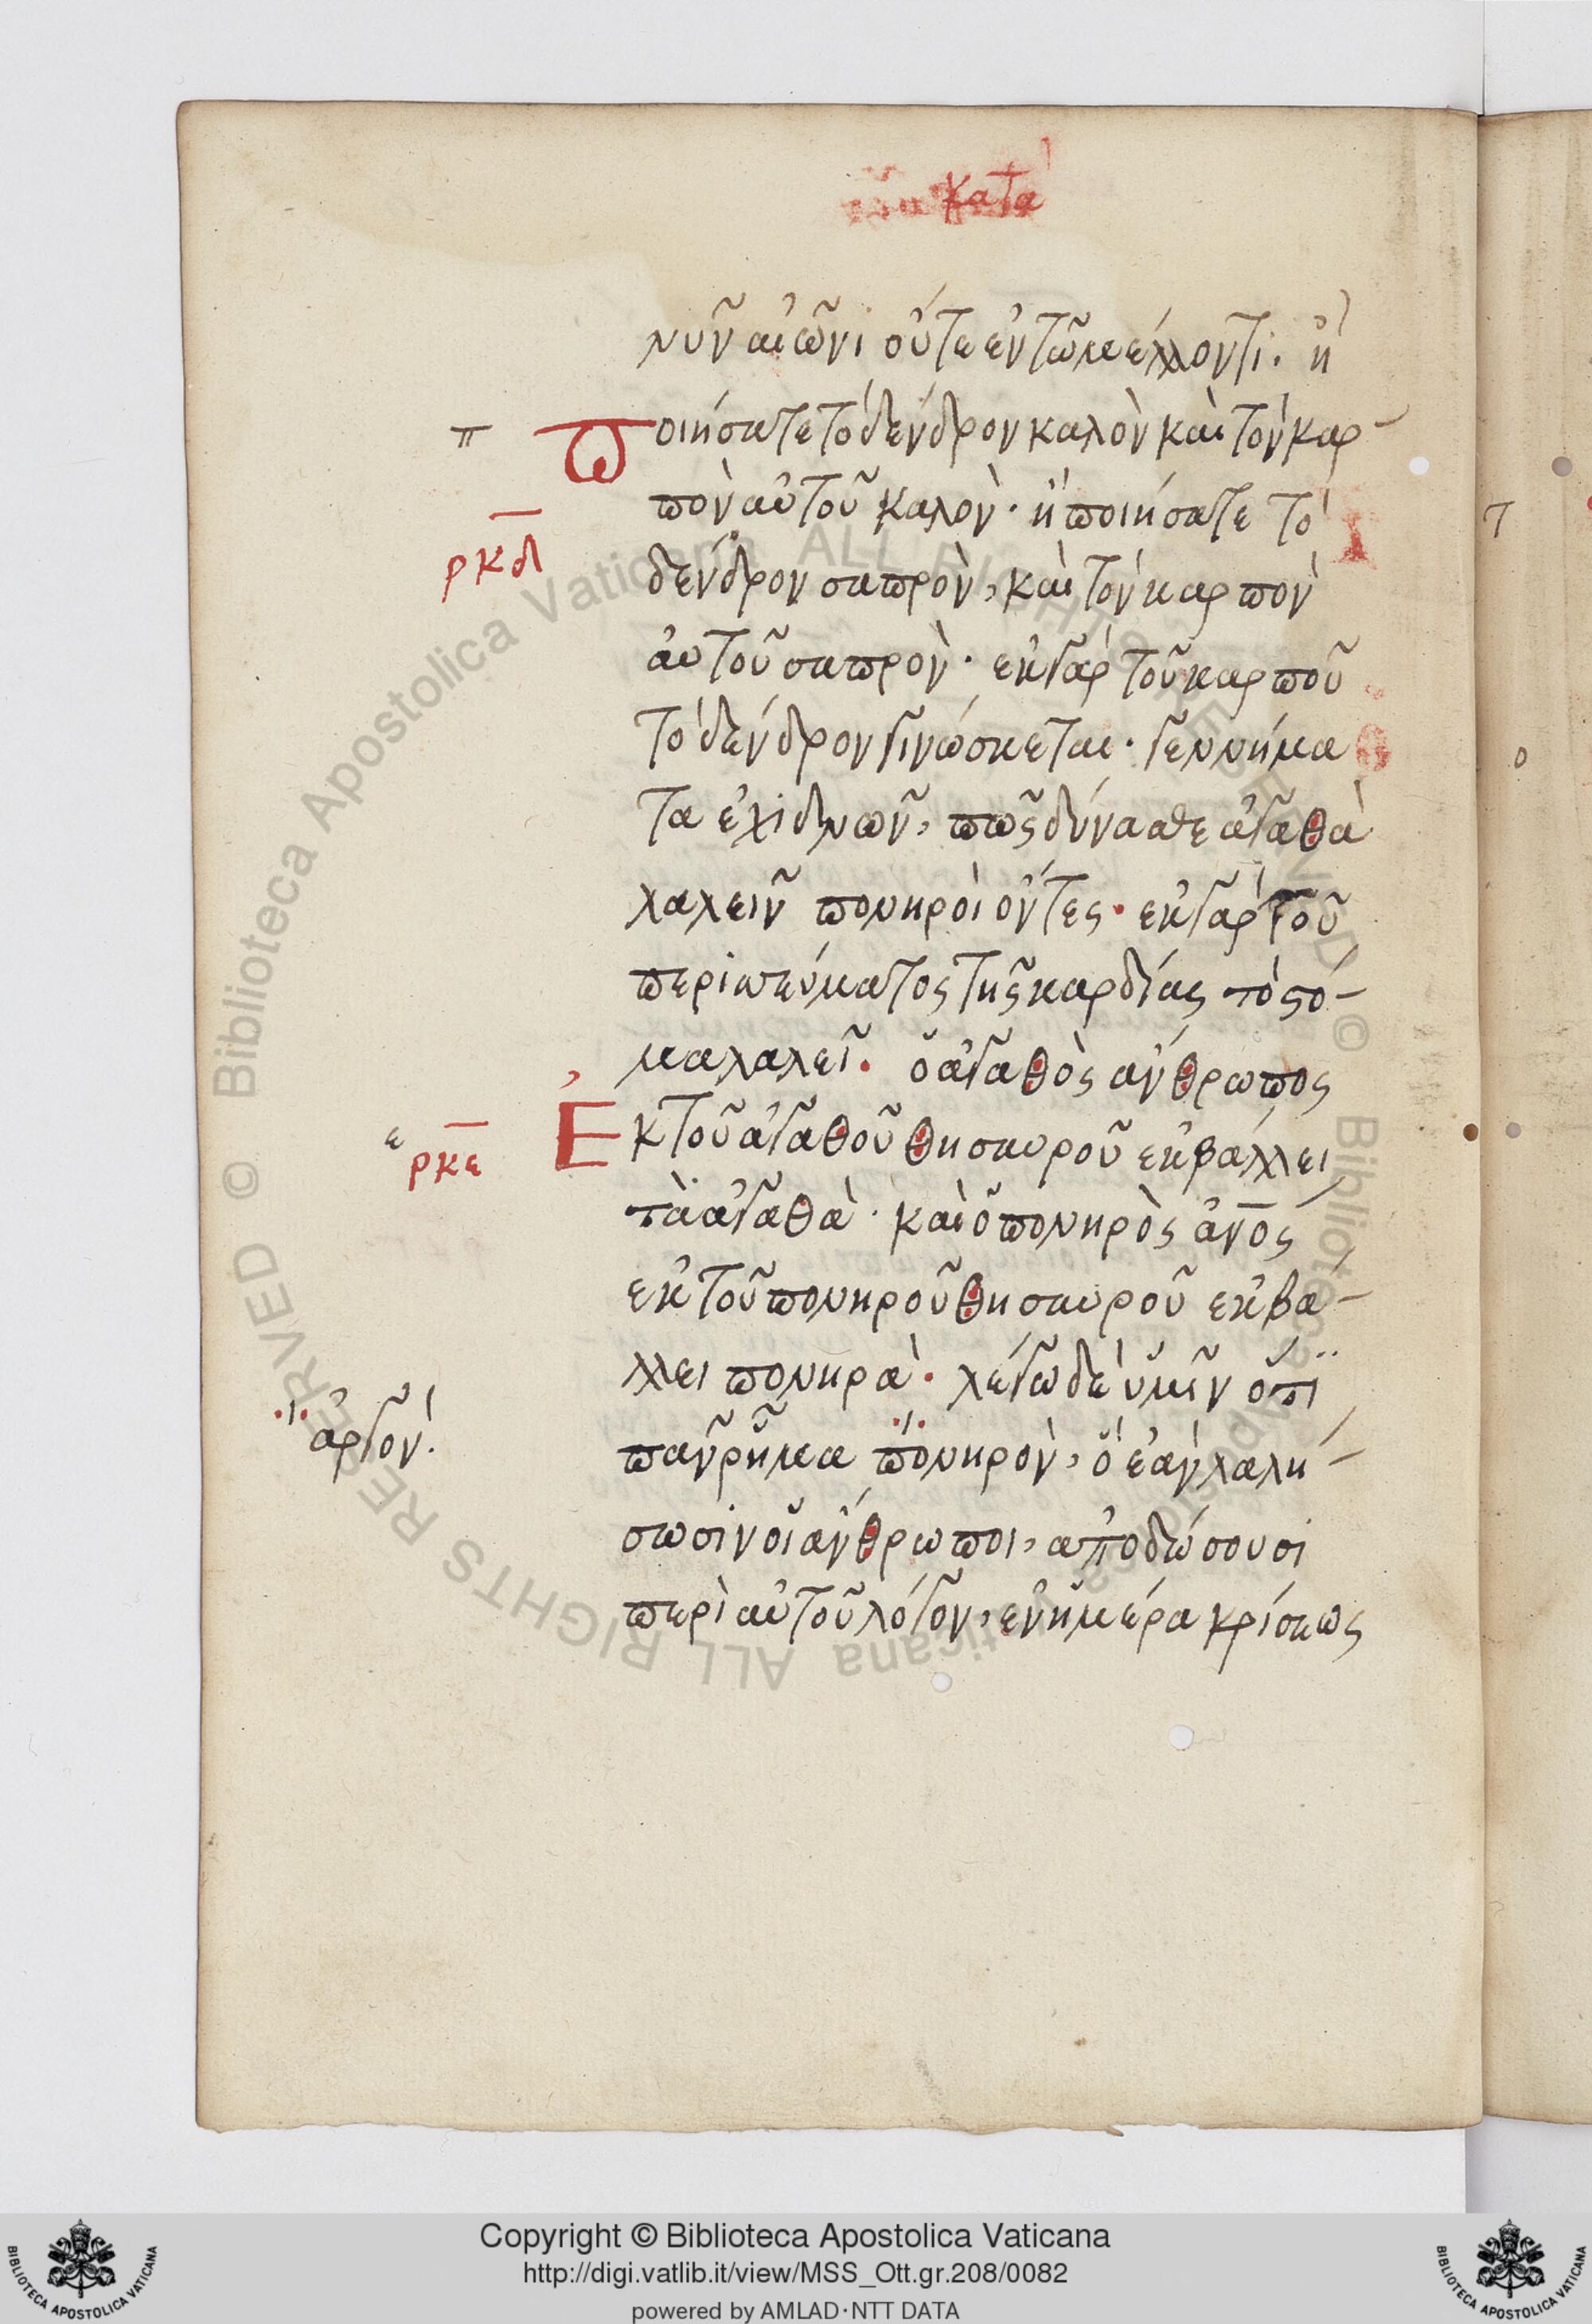 κατὰ
νυν αἰῶνι οὔτε ἐν τῶ μέλλοντι· ἢ
π Ποιήσατε τὸ δένδρον καλὸν καὶ τὸν καρ-
πὸν αὐτοῦ καλὸν· ἢ ποιήσατε τὸ
ρκδ
δένδρον σαπρὸν, καὶ τὸν καρπὸν
αὐτοῦ σαπρὸν· ἐκ γὰρ τοῦ καρποῦ
τὸ δένδρον γινώσκεται· γεννήμα
τα ἐχιδνῶν, πῶς δύνασθε ἀγαθὰ
λαλεῖν πονηροὶ ὄντες· ἐκ γὰρ τοῦ
περισσεύματος τῆς καρδίας τὸ στό-
μα λαλεῖ· ὁ ἀγαθὸς ἄνθρωπος
ε ρκε Ἐκ τοῦ ἀγαθοῦ θησαυροῦ ἐκβάλλει
τὰ ἀγαθὰ· καὶ ὁ πονηρὸς ἄνος
ἐκ τοῦ πονηροῦ θησαυροῦ ἐκβά-
λλει πονηρὰ· λέγω δὲ ὑμῖν ὅτι
ἀργὸν·
πᾶν ῥῆμα πονηρὸν, ὃ ἐὰν λαλή-
σωσιν οἱ ἄνθρωποι, ἀποδώσουσι
περὶ αὐτοῦ λόγον, ἐν ἡμέρα κρίσεως
Copyright © Biblioteca Apostolica Vaticana
http://digi.vatlib.it/view/MSS_Ott.gr.208/0082
powered by AMLAD·NTT DATA
BIBLIOTECA APOSTOLICA VATICANA
BIBLIOTECA APOSTOLICA VATICANA